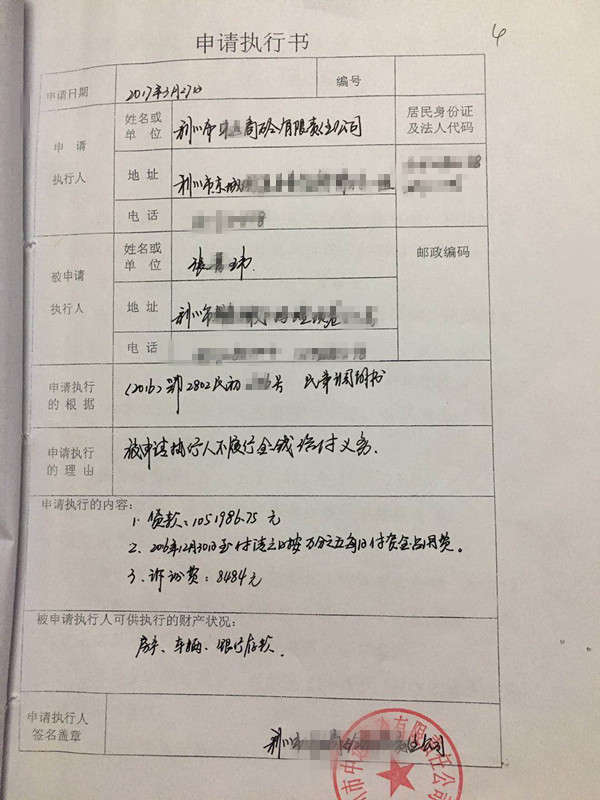 4
申请执行书
申请日期
2017年3月27日
编号
申 请
执行人
姓名或
单 位
利川市 商砼有限责任公司
居民身份证
及法人代码
地 址
利川市东城
电 话
8
被申请
执行人
姓名或
单 位
张 玮
邮政编码
地 址
利川市
电 话
申请执行
的 根 据
(2016)鄂2802民初 6号 民事调解书
申请执行
的 理 由
被申请执行人不履行金钱给付义务.
申请执行的内容:
1. 货款:1051986.75 元
2. 2016年12月30日至付清之日按万分之五每日付资金占用费。
3. 诉讼费:8484元
被申请执行人可供执行的财产状况:
房产、车辆、银行存款.
申请执行人
签名盖章
利川市 公司
川市中 有限责任公司